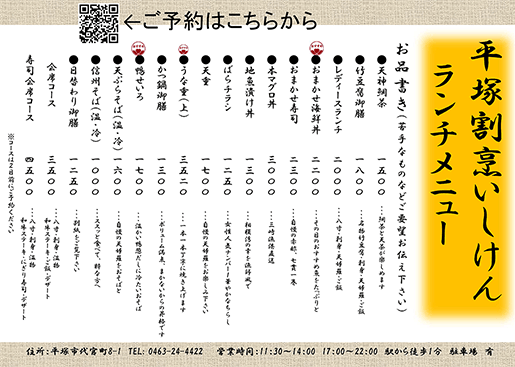 ←ご予約はこちらから
平塚割烹いしけん
ランチメニュー
お品書き(苦手なものなどご要望お伝え下さい)
●天神御茶 一五〇〇
●竹豆腐御膳 一八〇〇
●レディースランチ 二〇〇〇 …刺身・天婦羅・ご飯
●おまかせ海鮮丼 二二〇〇 …その日のおすすめ魚をたっぷりと
●おまかせ寿司 二三〇〇 …自慢の赤酢、七貫一巻
●本マグロ丼 三〇〇〇 …三崎漁港直送
●地魚漬け丼 一三〇〇 …相模湾の幸を漁師風で
●ばらチラシ 一二五〇 …女性人気ナンバー1華やかなちらし
●天重 一七〇〇 …自慢の天婦羅をお楽しみ下さい
●うな重(上) 三五二〇 …一本一本丁寧に焼き上げます
●かつ鍋御膳 一三〇〇 …ボリューム満点、まかないからの昇格です
●鴨せいろ 一七〇〇 …温かい鴨葱だしに冷たいおそば
●天ぷらそば(温・冷) 一六〇〇 …自慢の天婦羅をおそばと
●信州そば(温・冷) 一〇〇〇 …ススっと食べて、精をつう
●日替わり御膳 一二五〇 …別紙をご覧下さい
会席コース 三五〇〇 …八寸・刺身・温物
和牛ステーキ・ご飯・デザート
寿司会席コース 四五〇〇 …八寸・刺身・温物
和牛ステーキ・にぎり寿司・デザート
※コースは2日前にご予約ください
住所:平塚市代官町8-1 TEL: 0463-24-4422 営業時間:11:30〜14:00 17:00〜22:00 駅から徒歩1分 駐車場 有